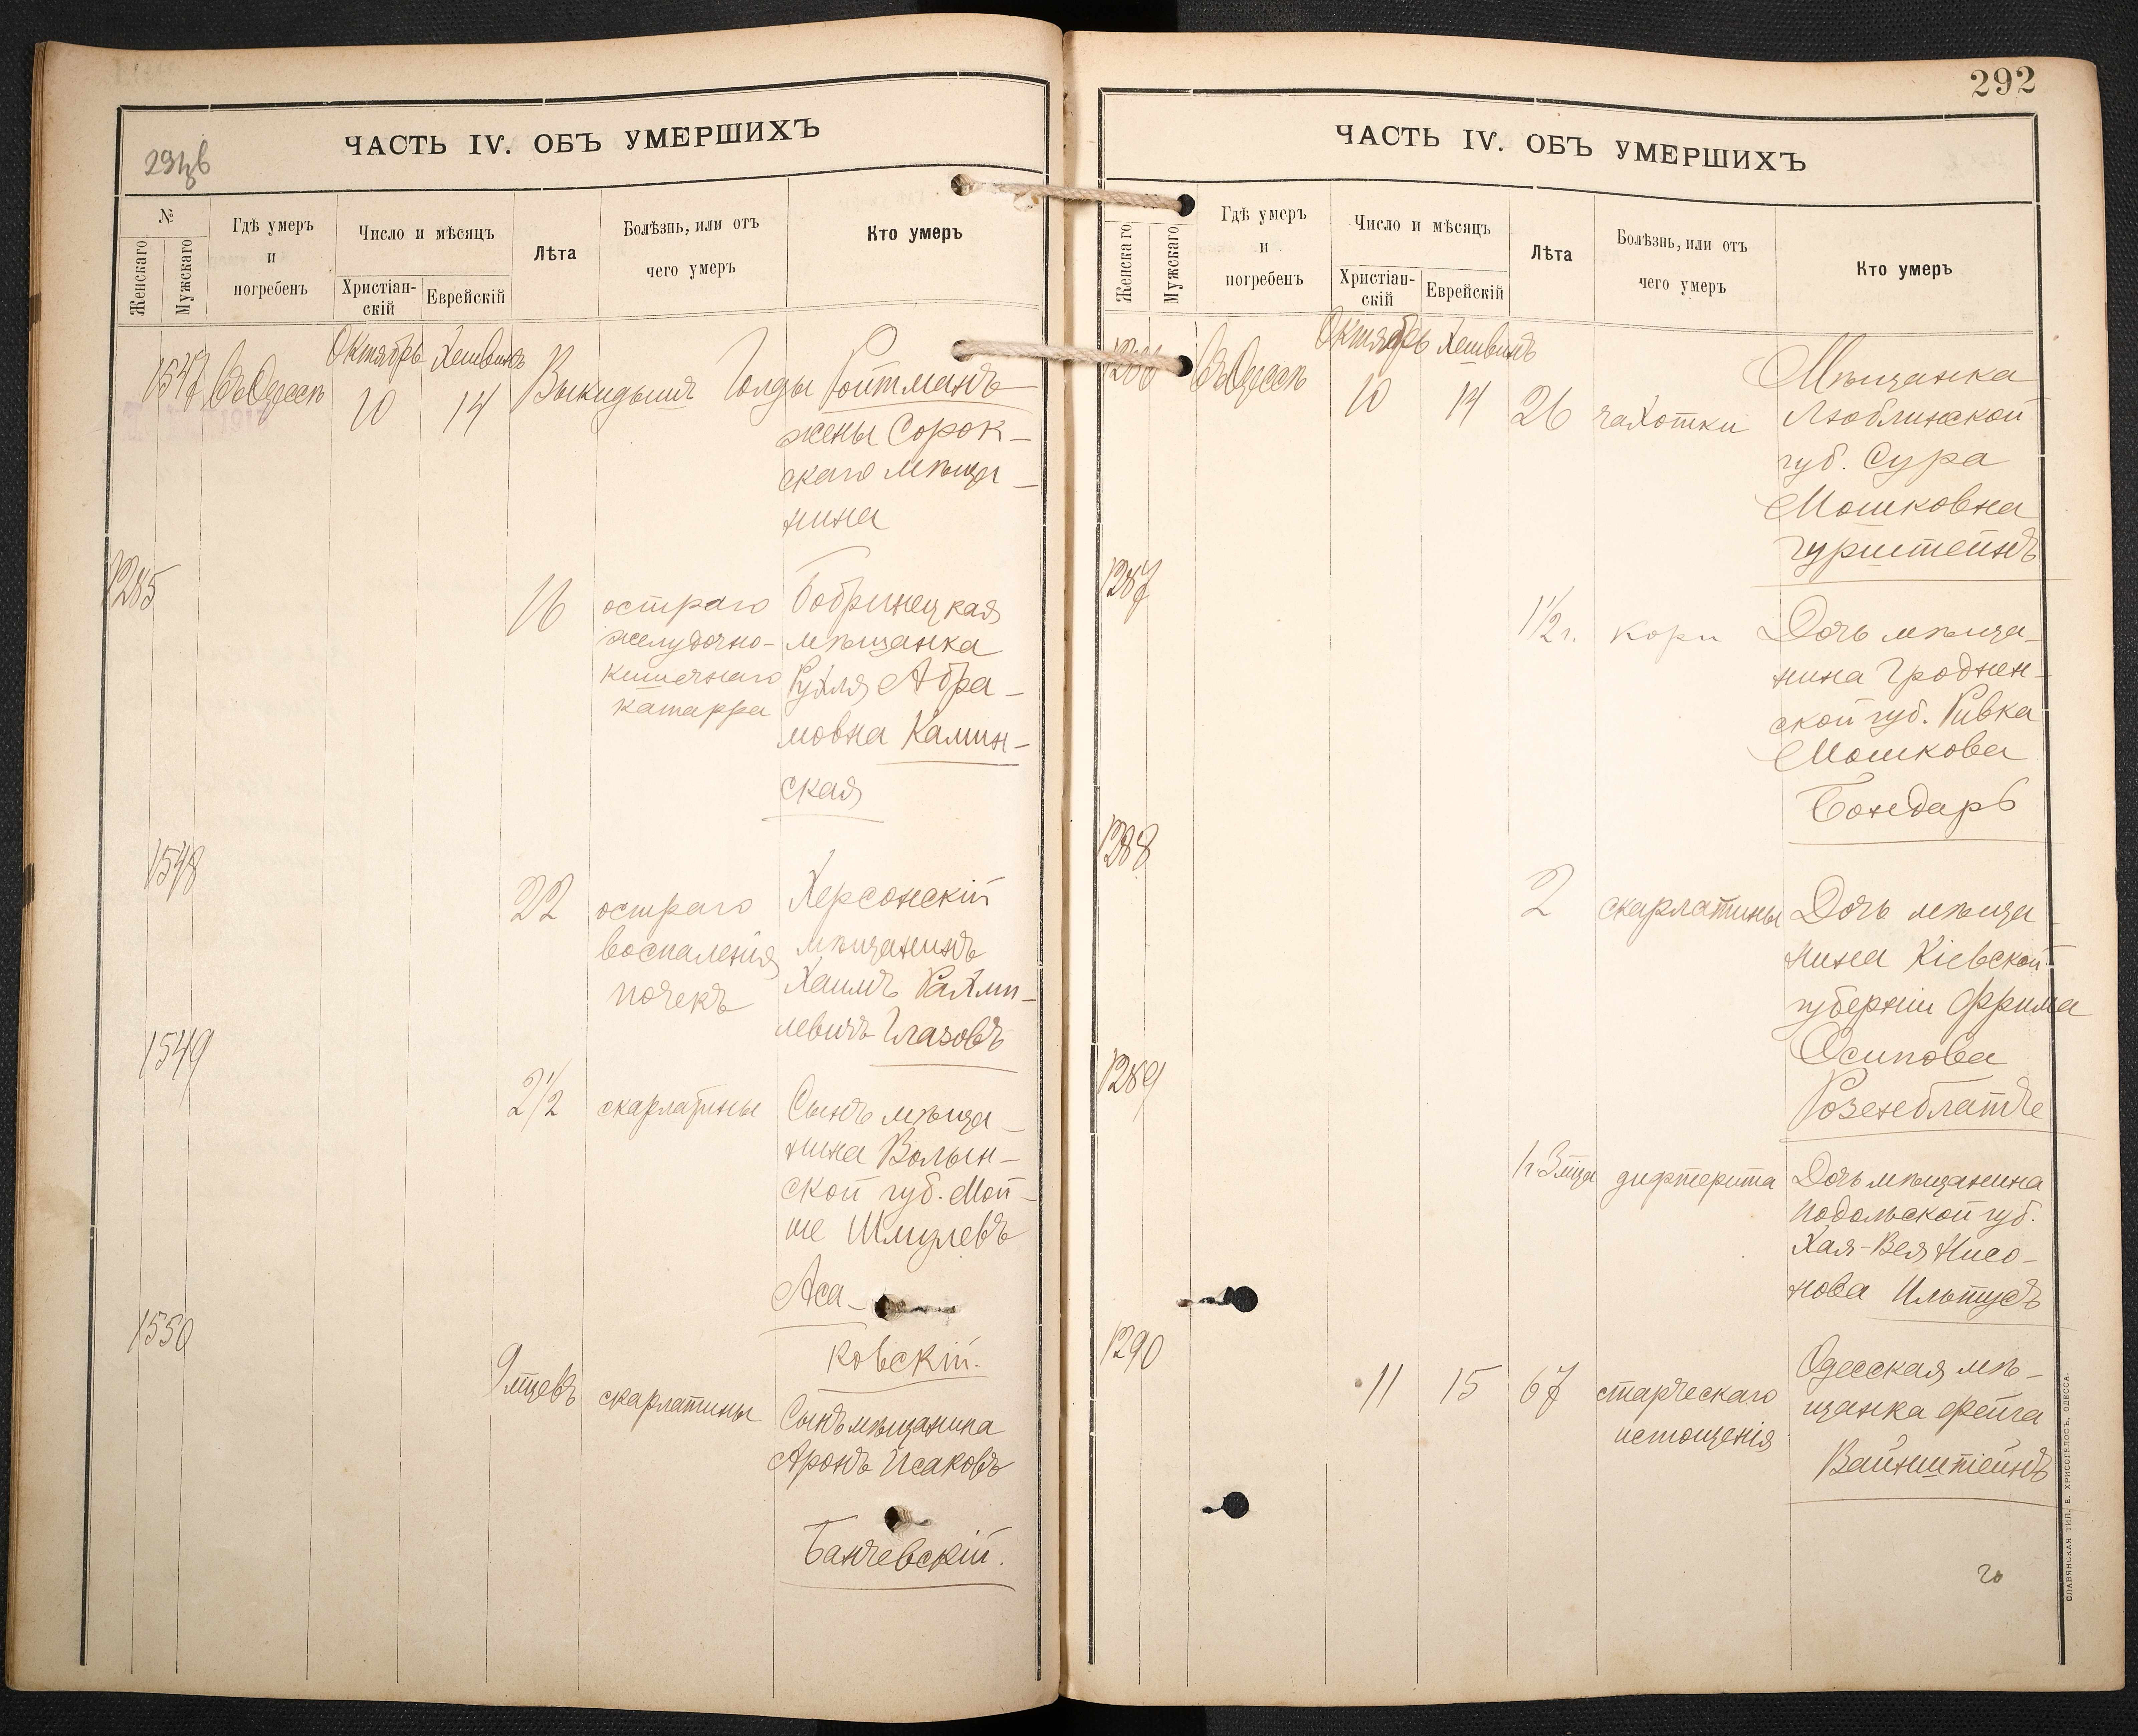 ЧАСТЬ IV. ОБЪ УМЕРШИХЪ
№
Женскаго
Мужскаго
Гдѣ умеръ
и
погребенъ
Число и мѣсяцъ
Христіан-
скій
Еврейскій
Лѣта
Болѣзнь, или отъ
чего умеръ
Кто умеръ
1547 Въ Одессѣ Октябрь 10 Хешвинъ 14 Выкидышъ Голды Ройтманъ
жены Сорок-
скаго мѣща-
нина
1285
16 остраго Бобринецкая
желудочно- мѣщанка
кишечнаго Рухля Абра-
катарра
мовна Камин-
ская
1548
22 остраго Херсонскій
воспаленія мѣщанинъ
почекъ Хаимъ Рахми-
левичъ Глазовъ
1549
2 1/2 скарлатины Сынъ мѣща-
нина Волын-
ской губ. Мой-
ше Шмулевъ
Аса-
ковскій.
1550
9 мцевъ скарлатины Сынъ мѣщанина
Аронъ Исаковъ
Банчевскій.
292
ЧАСТЬ IV. ОБЪ УМЕРШИХЪ
Женскаго
Мужскаго
Гдѣ умеръ
и
погребенъ
Число и мѣсяцъ
Христіан-
скій
Еврейскій
Лѣта
Болѣзнь, или отъ
чего умеръ
Кто умеръ
1286 Въ Одессѣ Октябрь 10 Хешвинъ 14 26 чахотки Мѣщанка
Люблинской
губ. Сура
Мошковна
Гурштейнъ
1287
1 1/2 г. кори Дочь мѣща-
нина Гроднен-
ской губ. Ривка
Мошкова
Бондарь
1288
2 скарлатины Дочь мѣща-
нина Кіевской
губерніи Фрима
Осипова
Розенблатъ
1289
1 г. 3 мца дифтерита Дочь мѣщанина
Подольской губ.
Хая-Бея Нисо-
нова
1290
11 15 67 старческаго Одесская мѣ-
истощенія щанка Фейга
Вайнштейнъ
СЛАВЯНСКАЯ ТИП. Е. ХРИСОГЕЛОСЪ, ОДЕССА.